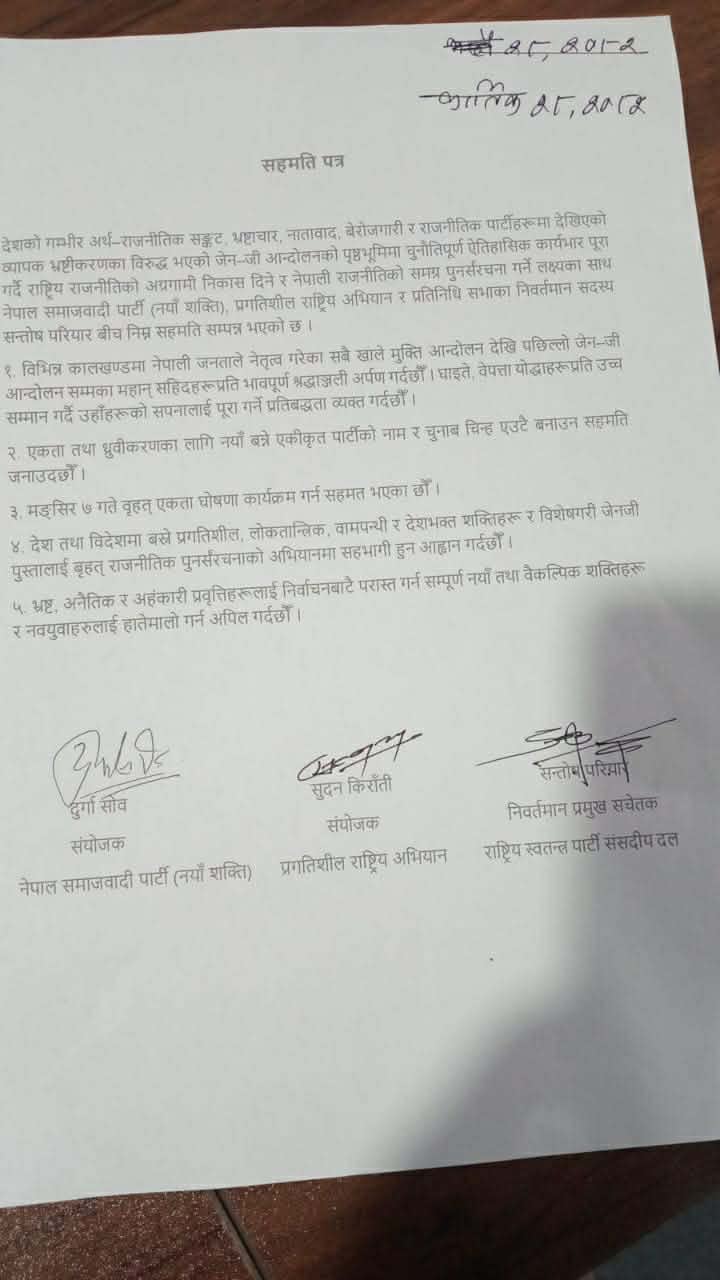 २८, २०८२
कार्तिक २८, २०८२
सहमति पत्र
देशको गम्भीर अर्थ–राजनीतिक सङ्कट, भ्रष्टाचार, नातावाद, बेरोजगारी र राजनीतिक पार्टीहरूमा देखिएको
व्यापक भ्रष्टीकरणका विरुद्ध भएको जेन–जी आन्दोलनको पृष्ठभूमिमा चुनौतिपूर्ण ऐतिहासिक कार्यभार पूरा
गर्दै राष्ट्रिय राजनीतिको अग्रगामी निकास दिने र नेपाली राजनीतिको समग्र पुनर्संरचना गर्ने लक्ष्यका साथ
नेपाल समाजवादी पार्टी (नयाँ शक्ति), प्रगतिशील राष्ट्रिय अभियान र प्रतिनिधि सभाका निवर्तमान सदस्य
सन्तोष परियार बीच निम्न सहमति सम्पन्न भएको छ ।
१. विभिन्न कालखण्डमा नेपाली जनताले नेतृत्व गरेका सबै खाले मुक्ति आन्दोलन देखि पछिल्लो जेन–जी
आन्दोलन सम्मका महान् सहिदहरूप्रति भावपूर्ण श्रद्धाञ्जली अर्पण गर्दछौँ । घाइते, वेपत्ता योद्धाहरूप्रति उच्च
सम्मान गर्दै उहाँहरूको सपनालाई पूरा गर्ने प्रतिबद्धता व्यक्त गर्दछौँ ।
२. एकता तथा ध्रुवीकरणका लागि नयाँ बन्ने एकीकृत पार्टीको नाम र चुनाब चिन्ह एउटै बनाउन सहमति
जनाउदछौँ ।
३. मङ्सिर ७ गते वृहत् एकता घोषणा कार्यक्रम गर्न सहमत भएका छौँ ।
४. देश तथा विदेशमा बस्ने प्रगतिशील, लोकतान्त्रिक, वामपन्थी र देशभक्त शक्तिहरू र विशेषगरी जेनजी
पुस्तालाई बृहत् राजनीतिक पुनर्संरचनाको अभियानमा सहभागी हुन आह्वान गर्दछौँ ।
५. भ्रष्ट, अनैतिक र अहंकारी प्रवृत्तिहरूलाई निर्वाचनबाटै परास्त गर्न सम्पूर्ण नयाँ तथा वैकल्पिक शक्तिहरू
र नवयुवाहरुलाई हातेमालो गर्न अपिल गर्दछौँ ।
दुर्गा सोव
संयोजक
नेपाल समाजवादी पार्टी (नयाँ शक्ति)
सुदन किराँती
संयोजक
प्रगतिशील राष्ट्रिय अभियान
सन्तोष परियार
निवर्तमान प्रमुख सचेतक
राष्ट्रिय स्वतन्त्र पार्टी संसदीय दल